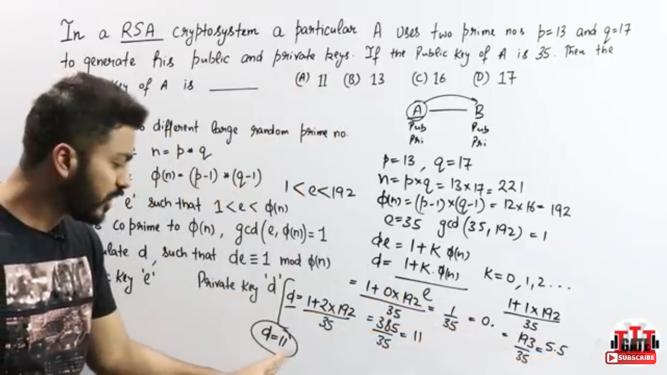 In a RSA cryptosystem a particular A uses two prime nos p=13 and q=17
to generate his public and private keys. If the Public Key of A is 35. Then the
Key of A is ______ (A) 11 (B) 13 (C) 16 (D) 17
different large random prime no.
n = p * q
ϕ(n) = (p-1) * (q-1)
1 < e < 192
e' such that 1 < e < ϕ(n)
coprime to ϕ(n), gcd(e, ϕ(n)) = 1
ulate d, such that de ≡ 1 mod ϕ(n)
ic key 'e' Private key 'd'
A B
Pub Pub
Pri Pri
p=13, q=17
n = p×q = 13×17 = 221
ϕ(n) = (p-1)×(q-1) = 12×16 = 192
e=35 gcd(35, 192) = 1
de = 1 + K ϕ(n)
d = 1 + K. ϕ(n) K = 0, 1, 2...
e
= 1+0×192 / 35 = 1/35 = 0.
1+1×192 / 35
= 193/35 = 5.5
d = 1+2×192 / 35 = 385/35 = 11
d=11
GATE
SUBSCRIBE